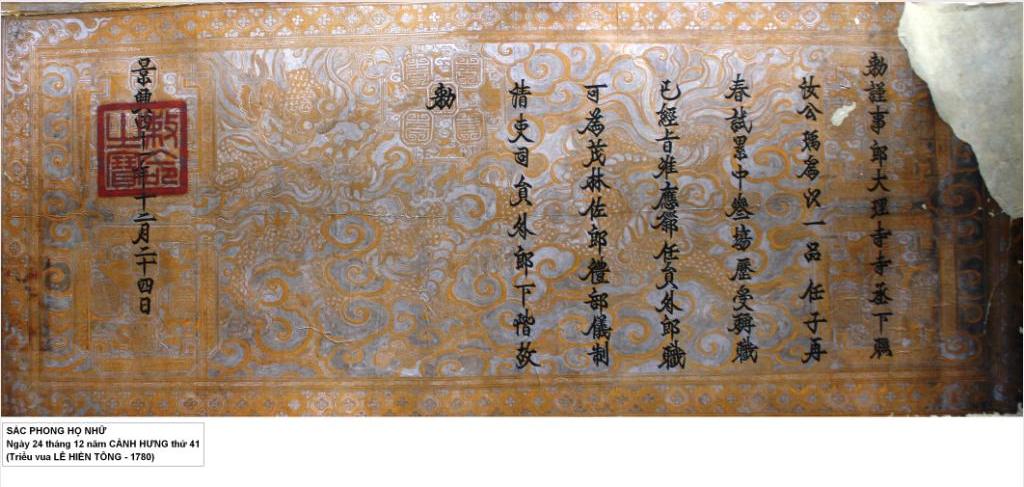 勅謹事郎大理寺寺丞下聯
汝公瑀為以一品任子再
春試累中叄場歷受職
已經旨准應任員外郎職
可為茂林佐郎禮部儀制
清吏司員外郎下階故
勅
景興四十一年十二月二十四日
敕命之寶
SẮC PHONG HỌ NHỮ
Ngày 24 tháng 12 năm CẢNH HƯNG thứ 41
(Triều vua LÊ HIỂN TÔNG - 1780)